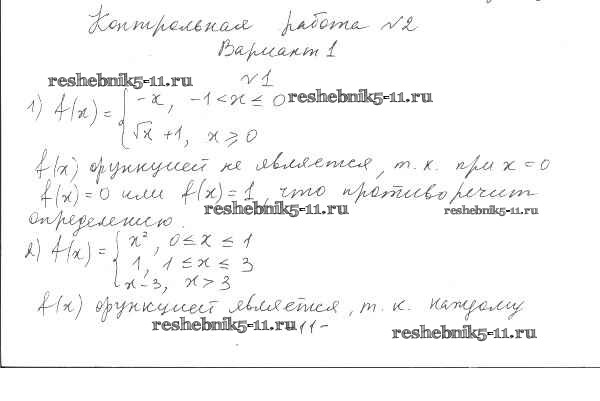 Контрольная работа №2
Вариант 1
№1
reshebnik5-11.ru
1) f(x) = { -x, -1 < x ≤ 0 reshebnik5-11.ru
√x + 1, x ≥ 0
f(x) функцией не является, т.к. при x = 0
f(x) = 0 или f(x) = 1, что противоречит
reshebnik5-11.ru reshebnik5-11.ru
определению.
2) f(x) = { x², 0 ≤ x ≤ 1
1, 1 ≤ x ≤ 3
x - 3, x > 3
f(x) функцией является, т.к. каждому
reshebnik5-11.ru -11-
reshebnik5-11.ru